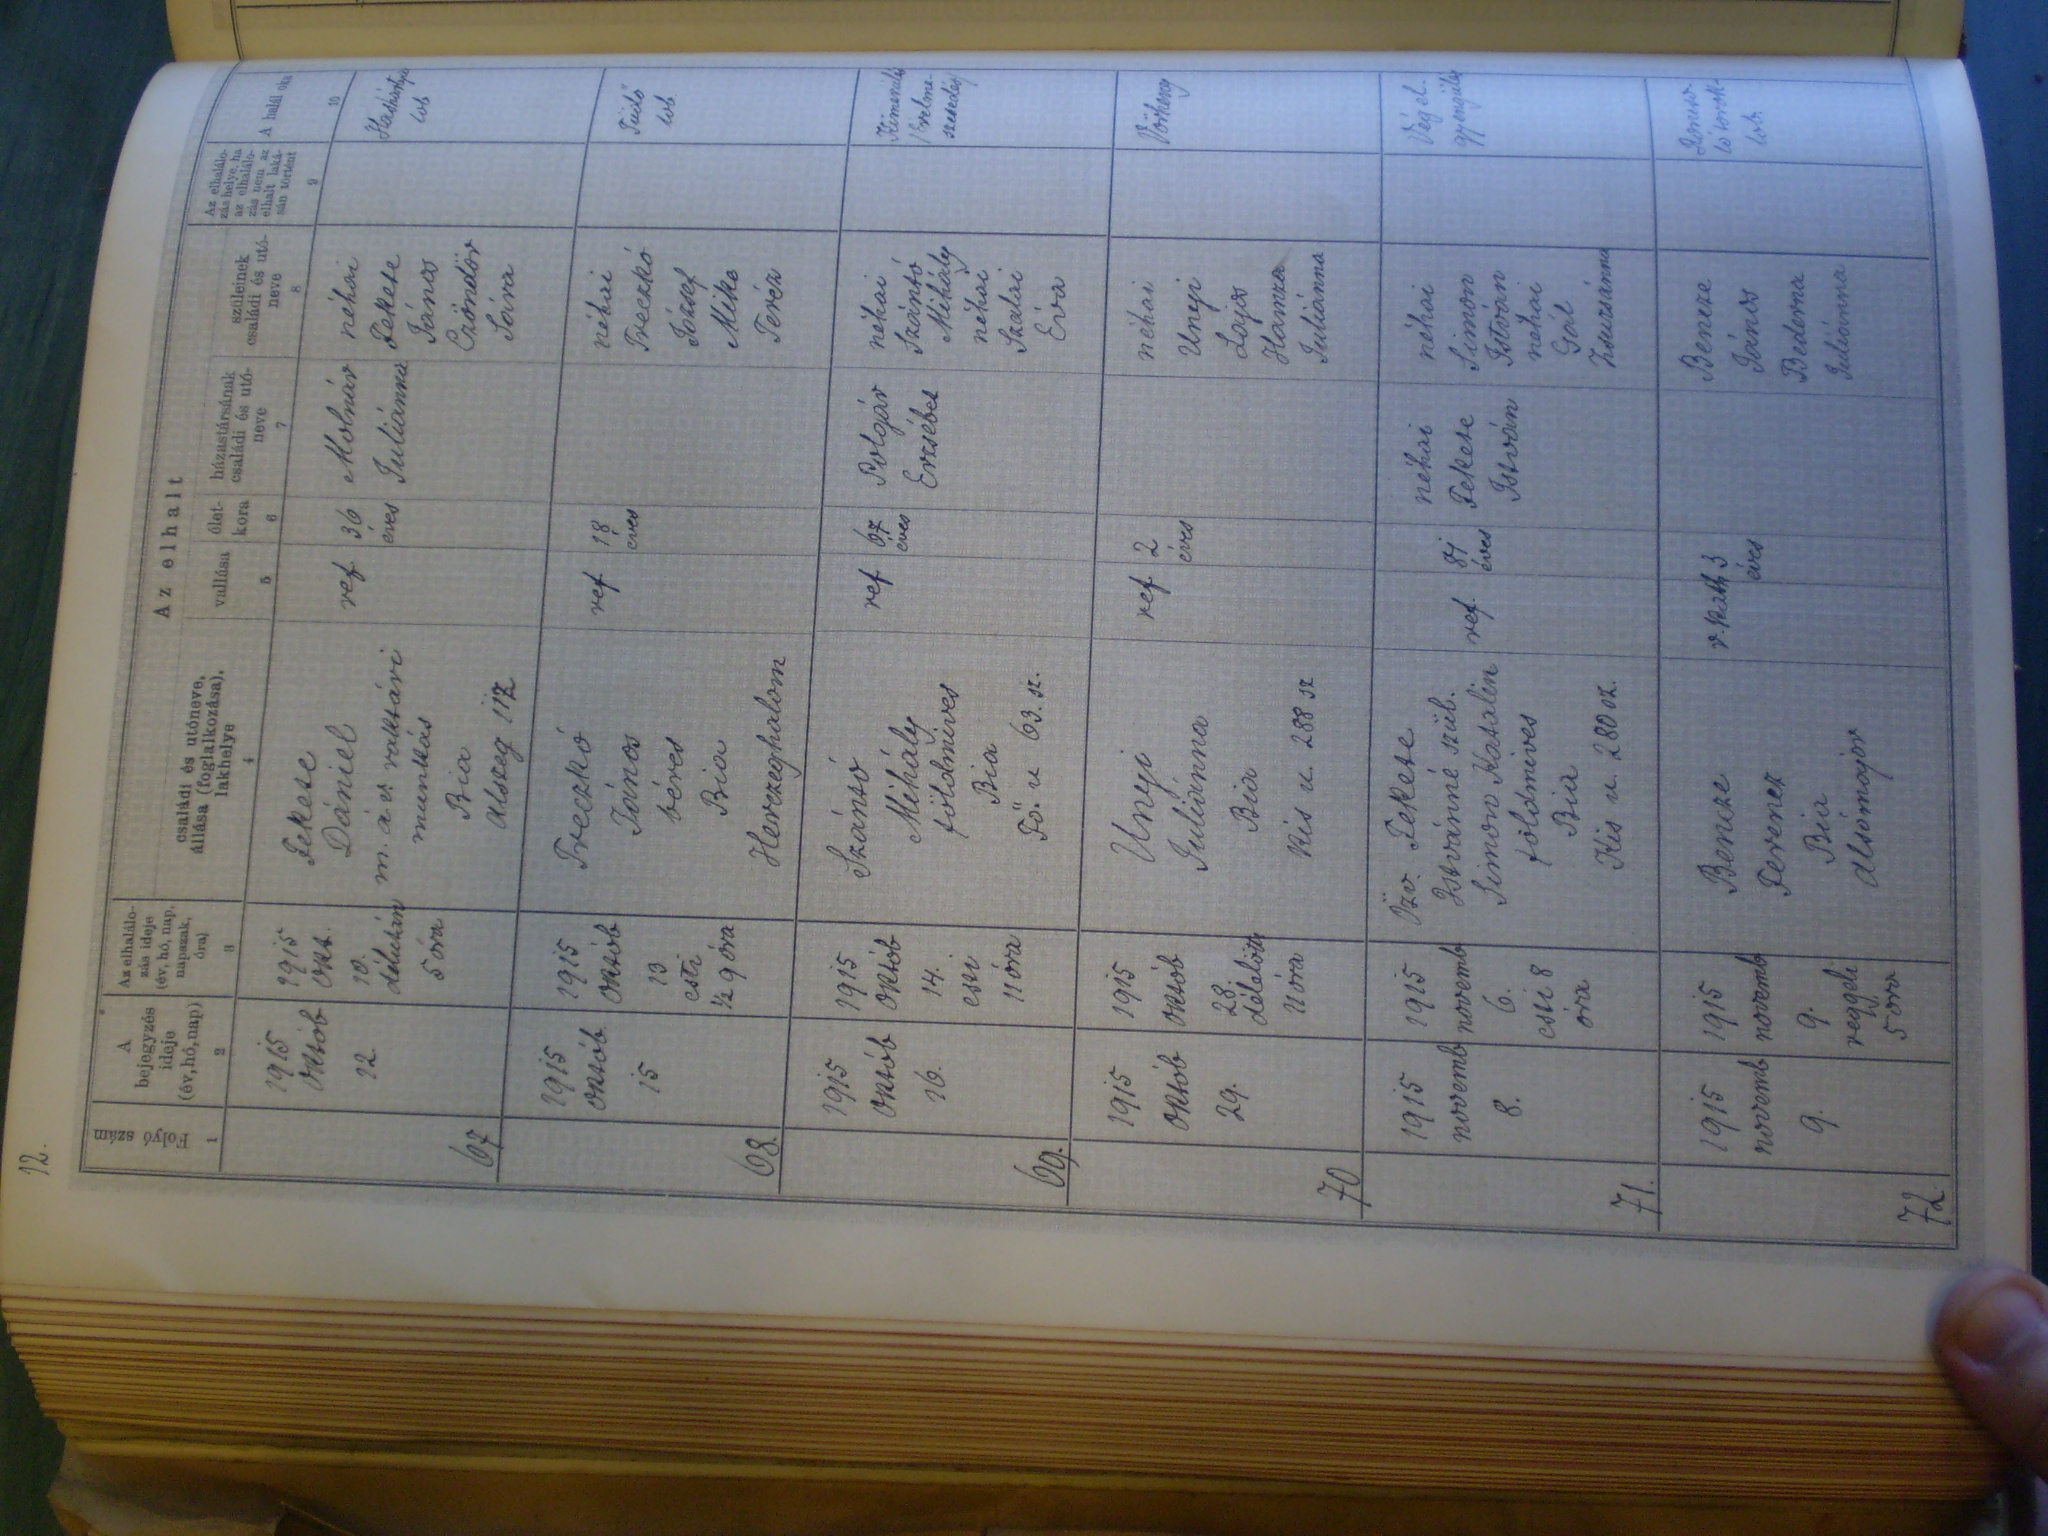 12.
Az elhalt
Folyó szám
A bejegyzés ideje (év, hó, nap)
Az elhalálo-
zás ideje
(év, hó, nap,
napszak,
óra)
családi és utóneve,
állása (foglalkozása),
lakhelye
vallása
élet-
kora
házastársának
családi és utó-
neve
szüleinek
családi és utó-
neve
Az elhalálo-
zás helye, ha
az elhalálo-
zás nem az
elhalt laká-
sán történt
A halál oka
1 2 3 4 5 6 7 8 9 10
67
1915
Októb
12.
1915
Okt.
10.
délután
5 óra
Fekete
Dániel
m. á. v. raktári
munkás
Bia
Alszeg 117
ref
36
éves
Molnár
Juliánna
néhai
Fekete
János
Czöndör
Sára
Hashártya
lob
68.
1915
Októb.
15
1915
Októb
13
esti
½ 9 óra
Treczkó
János
béres
Bia
Herczeghalom
ref
18
éves
néhai
Treczkó
József
Mike
Teréz
Tüdő
lob
69.
1915
Októb
16.
1915
Októb
14.
esti
11 óra
Szántó
Mihály
földmíves
Bia
Fő. u 63. sz.
ref
67
éves
Polgár
Erzsébet
néhai
Szántó
Mihály
néhai
Szalai
Éva
70
1915
Októb
29.
1915
Októb
28.
délelőtt
11 óra
Unyi
Juliánna
Bia
Kis u. 288 sz
ref
2
éves
néhai
Unyi
Lajos
Hanzra
Juliánna
Vörheny
71.
1915
novemb
8.
1915
novemb
6.
esti 8
óra
Özv. Fekete
Istvánné szül.
Simon Katalin
földmíves
Bia
Kis u. 280 sz.
ref.
81
éves
néhai
Fekete
István
néhai
Simon
István
néhai
Gál
Zsuzsánna
Vég el.
gyengülés
72.
1915
novemb
9.
1915
novemb
9.
reggeli
5 óra
Bencze
Ferencz
Bia
Alsómajor
r. kath
3
éves
Bencze
János
Bedecna
Juliánna
lob.